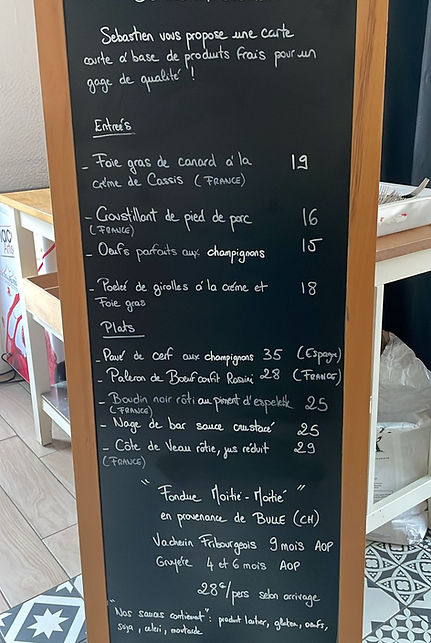 Sébastien vous propose une carte
courte à base de produits frais pour un
gage de qualité !
Entrées
- Foie gras de canard à la 19
crème de Cassis (FRANCE)
- Croustillant de pied de porc 16
(FRANCE)
- Oeufs parfaits aux champignons 15
- Poêlée de girolles à la crème et 18
Foie gras
Plats
- Pavé de cerf aux champignons 35 (Espagne)
- Paleron de Boeuf confit Rossini 28 (FRANCE)
- Boudin noir rôti au piment d'espelette 25
(FRANCE)
- Nage de bar sauce crustacé 25
- Côte de Veau rôtie, jus réduit 29
(FRANCE)
" Fondue Moitié - Moitié "
en provenance de BULLE (CH)
Vacherin Fribourgeois 9 mois AOP
Gruyère 4 et 6 mois AOP
28€/pers selon arrivage
"Nos sauces contiennent" : produit laitier, gluten, oeufs,
soja, céleri, moutarde